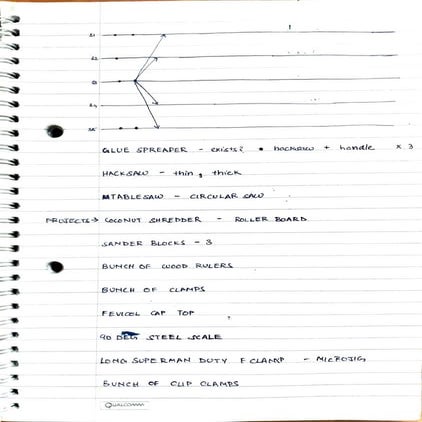 GLUE SPREADER - exists? • hacksaw + handle x 3
HACKSAW - thin, thick
TABLESAW - CIRCULAR SAW
PROJECTS → COCONUT SHREDDER - ROLLER BOARD
SANDER BLOCKS - 3
BUNCH OF WOOD RULERS
BUNCH OF CLAMPS
FEVICOL CAP TOP
90 DEG STEEL SCALE
LONG SUPERMAN DUTY F CLAMP - MICROJIG
BUNCH OF CLIP CLAMPS
QUALCOMM